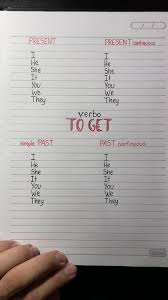 PRESENT PRESENT continuous
I I
He He
She She
It It
You You
We We
They They
verbo
TO GET
simple PAST PAST continuous
I I
He He
She She
It It
You You
We We
They They